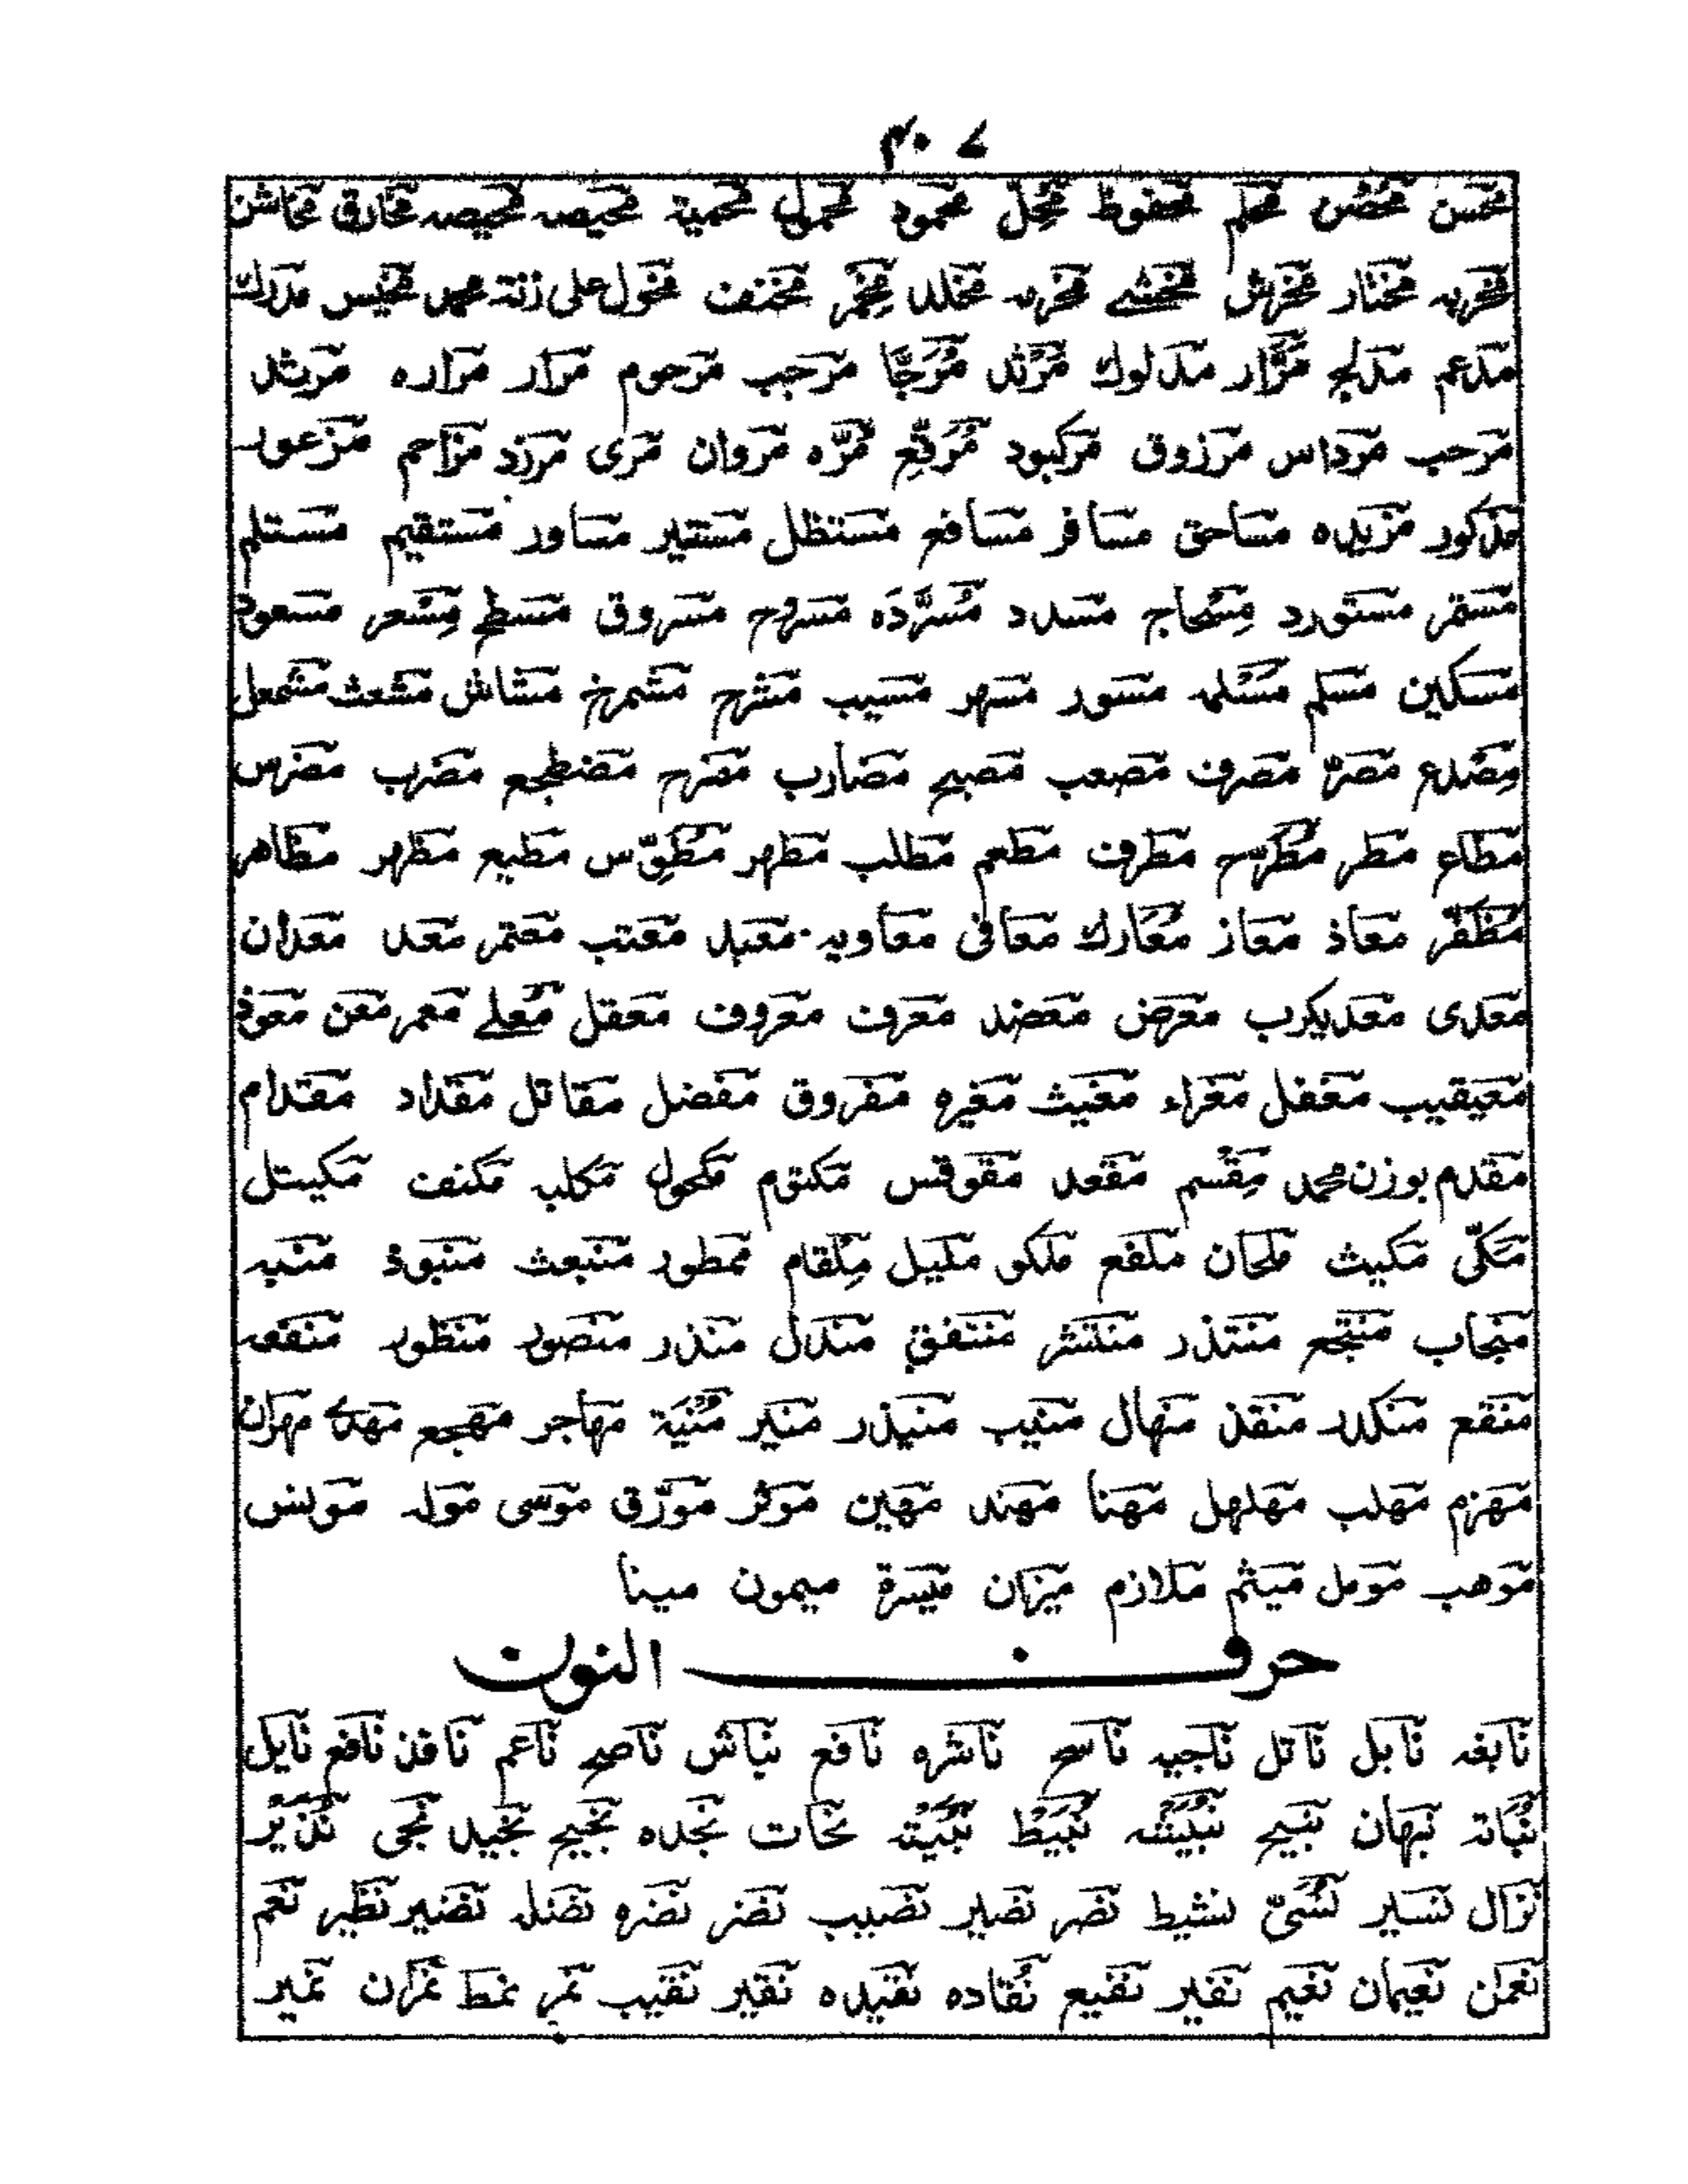 ٤٠٧
محسن محضن محلم محفوظ مُحِلّ محمود محمول محمية محيصه محيصه مخارق مخاشن
مخربه مختار مخرش مخشي مخربه مخلد مِخْمَر مخنف مخول علی زنة محمد مخیس مدرك
مدعم مدلج مَرَّار مدلوك مَرْثد مُرَجَّا مرحب مرحوم مرار مراره مرثد
مرحب مرداس مرزوق مرکبود مُرَقّع مُرّه مروان مری مرزد مزاحم مزعور
مذکور مزیده مساحق مسافر مسافع مستظل مستنیر مساور مستقیم مستلم
مستمر مستورد مِسْحاج مسدد مُسَرَّدَه مسروح مسروق مسطح مِسْعر مسعود
مسکین مسلم مَسْلمه مسور مسهر مسیب مشرح مشمرخ مشاش مشعث مشمعل
مِصْدع مصرّ مصرف مصعب مصبح مضارب مضرح مضطجع مضرب مضرس
مطاع مطر مُطَرِّح مطرف مطعم مطلب مطهر مُطَوِّس مطیع مظهر مظاهر
مُظَفَّر معاذ معاز مُعَارك معافی معاویه معبد معتب معتمر معد معدان
معدی معدیکرب معرض معضد معرف معروف معقل مُعلے معمر معن معوذ
معیقیب مغفل مغراء مغیث مغیره مفروق مفضل مقاتل مقداد مقدام
مقدم بوزن محمد مِقْسم مقعد مقوقس مکتوم مکحول مکلبه مکنف مکیتل
مَکّی مکیث ملحان ملفع ملکو ملیل مِلْقام ممطور منبعث منبوذ منبه
منجاب منتجع منتذر منتشر منتفق مندل منذر منصور منظور منقعه
منقع منکدر منقذ منهال منیب منیذر منیر مُنْیَة مهاجر مهجع مهدے مهران
مهزم مهلب مهلهل مهنا مهند مهین موثر مورّق موسی موله مونس
موهب مومل میثم ملازم میزان میسرة میمون مینا
حرف النون
نابغه نابل ناتل ناجیه ناسح ناشره نافع نباش ناصح ناعم نافذ نافع نایل
نُبَاته نبهان نبیح نُبَیْشه نُبَیْط نُبَیْته نحات نجده نجیح نجید نجی نُذَیْر
نزال نسیر نُسَیّ نشیط نصر نصیر نصیب نضر نضره نضله نضیر نظیر نعم
نعمان نعیمان نعیم نفیر نفیع نُقاده نقیده نقیر نقیب نمر نمط نمران نمیر